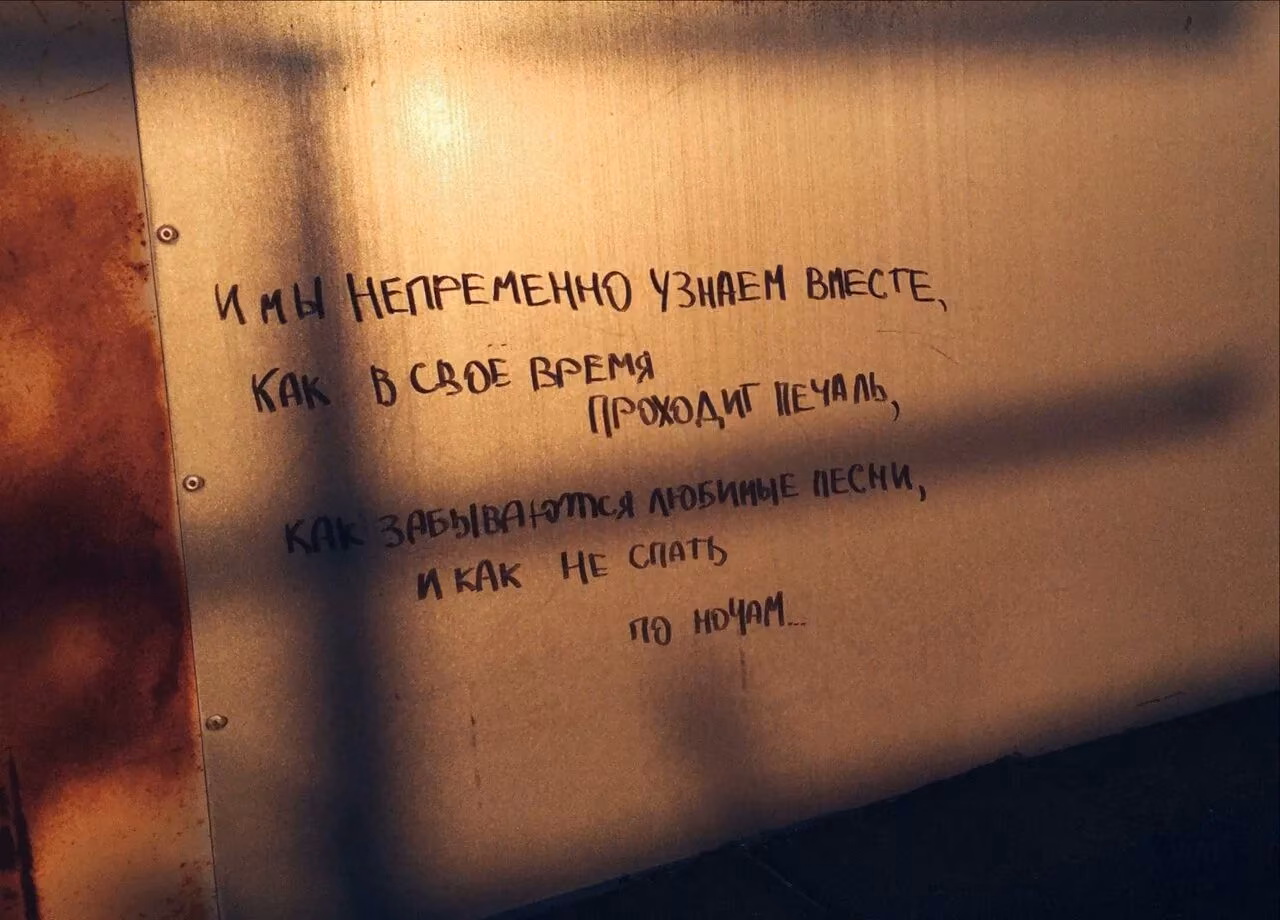 И МЫ НЕПРЕМЕННО УЗНАЕМ ВМЕСТЕ,
КАК В СВОЁ ВРЕМЯ
ПРОХОДИТ ПЕЧАЛЬ,
КАК ЗАБЫВАЮТСЯ ЛЮБИМЫЕ ПЕСНИ,
И КАК НЕ СПАТЬ
ПО НОЧАМ...